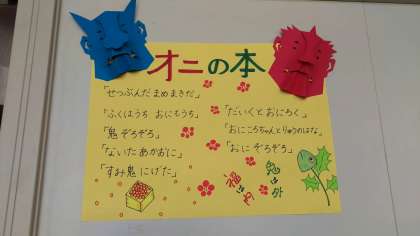 オニの本
「せつぶんだ まめまきだ」
「ふくはうち おにもうち」
「鬼ぞろぞろ」
「ないた あかおに」
「すみ鬼 にげた」
「だいくと おにろく」
「おにころちゃんとりゅうのはな」
「おに ぞろぞろ」
鬼は外
福は内